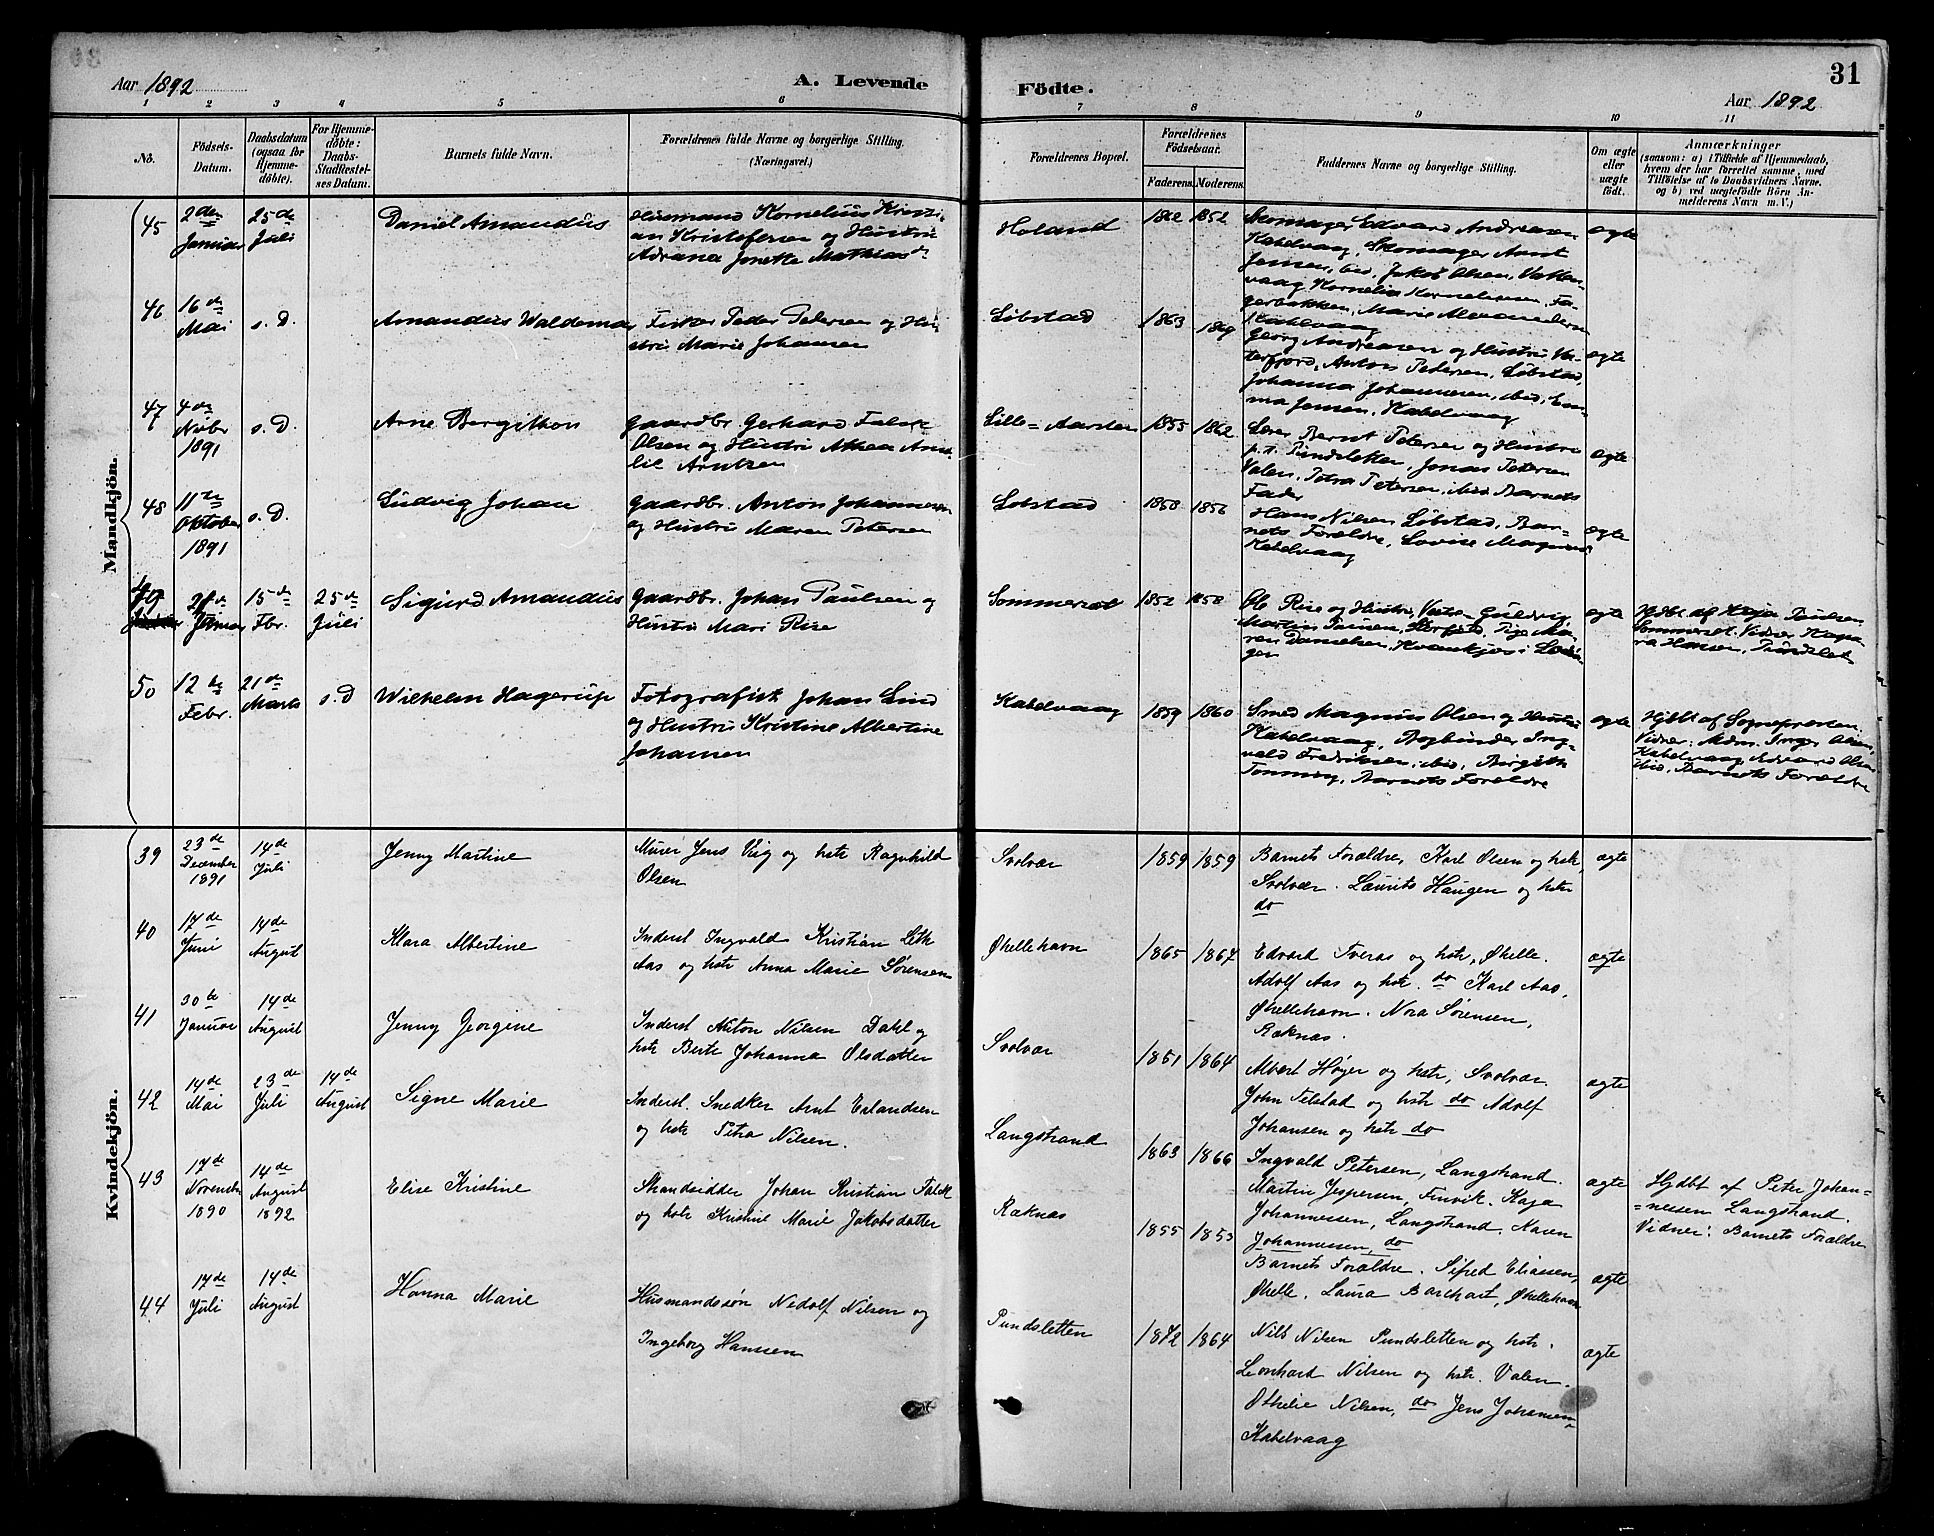 Aar 1892
A. Levende
Födte.
31
Aar 1892
1 2 3 4 5 6 7 8 9 10 11
No.
Födsels-Datum.
Daabsdatum (ogsaa for Hjemme-döbte).
For Hjemme-döbte: Daabs-Stadfæstel-ses Datum.
Barnets fulde Navn.
Forældrenes fulde Navne og borgerlige Stilling. (Næringsvei.)
Forældrenes Bopæl.
Forældrenes Födselsaar.
Faderens. Moderens.
Faddernes Navne og borgerlige Stilling.
Om ægte eller uægte födt.
Anmærkninger
(saasom: a) i Tilfælde af Hjemmedaab, hvem der har forrettet samme, med Tilföielse af to Daabsvidners Navne, og b) ved uægtefödte Börn An-melderens Navn m. V.)
Mandkjön.
45 2den Januar 25de Juli Daniel Amandus
Husmand Kornelius Kristi-
an Kristofersen og Hustru
Adriana Jonette Mathiasd.
Holand 1862 1852
Skomager Edvard Andreasen
Kabelvaag, Skomager Arnt
Jensen, ibid, Jakob Olsen, Vatten-
vaag, Kornelia Korneliusen, Fa-
gerbakken, Marie Alexandersen
Kabelvaag
ægte
46 16de Mai s. D. Amandus Waldemar
Fisker Peder Petersen og Hu-
stru Marie Johansen
Löbstad 1863 1869
Georg Andreasen og Hustru, Va-
terfjord, Anton Petersen, Löbstad,
Johanna Johannesen, ibid, Em-
ma Jensen, Kabelvaag
ægte
47 4de Novbr 1891 s. D. Arne Bergithon
Gaardbr. Gerhard Falk
Olsen og Hustru Althea Ama-
lie Arntsen
Lille=Aarsten 1855 1862
Lærer Bernt Petersen og Hustru
p.t. Pundsletten, Jonas Petersen
Valen, Petra Petersen, ibid Barnets
Fader
ægte
48 11te Oktober 1891 s. D. Ludvig Johan
Gaardbr. Anton Johannesen
og Hustru Maren Petersen
Löbstad 1858 1856
Hans Nilsen Löbstad, Bar-
nets Forældre, Lovise Magnus
Kabelvaag
ægte
49 21de Januar 15de Fbr. 25de Juli Sigurd Amandus
Gaardbr. Johan Paulsen og
Hustru Mari Rise
Sommerset 1852 1858
Ole Rise og Hustru, Guldvig,
Martin Storfjeld, Pige Ma-
ren Danielsen, Kvankjos i Lødin-
gen
ægte
Hjdbt af Kaja Paulsen
Sommerset. Vidner Kaja
Hansen, Pundslet
50 12te Febr. 21de Marts s. D Wilhelm Hagerup
Fotografist Johan Lind
og Hustru Kristine Albertine
Johansen
Kabelvaag 1859 1860
Smed Magnus Olsen og Hustru
Kabelvaag, Bogbinder Ing-
vald Fredriksen, ibid, Birgith
Tönning, Barnets Forældre
ægte
Hjdbt af Sognepræsten
Vidner: Mdm. Inger Olsen,
Kabelvaag, Edvard Olsen
ibid, Barnets Forældre
Kvindekjön.
39 23de December 1891 14de Juli Jenny Martine
Murer Jens Vig og hstr Ragnhild
Olsen
Svolvær 1859 1859
Barnets Forældre, Karl Olsen og hstr,
Svolvær. Laurits Haugen og hstr
do
ægte
40 17de Juni 14de August Klara Albertine
Inderst Ingvald Kristian Leth
Aas og hstr Anna Marie Sörensen
Øhellehavn 1865 1867
Edvard Tveras og hstr, Øhelle.
Adolf Aas og hstr. do Karl Aas,
Øhellehavn. Nora Sörensen,
Raknæs.
ægte
41 30te Januar 14de August Jenny Georgine
Inderst Anton Nilsen Dahl og
hstr Berte Johanna Olsdatter
Svolvær 1851 1864
Albert Höyer og hstr, Svolvær.
John Filstad og hstr do Adolf
Johansen og hstr do
ægte
42 14de Mai 23de Juli 14de August Signe Marie
Inderst. Snedker Arnt Erlandsen
og hstr Petra Nilsen.
Langstrand 1863 1866
Ingvald Petersen, Langstrand.
Martin Jespersen, Finvik. Kaja
Johannessen, Langstrand. Karen
Johannessen, do
ægte
Hjdbt af Peter Johan=
=nessen Langstrand.
Vidner: Barnets Forældre
43 17de Novembr 1890 14de August 1892 Elise Kristine
Strandsidder Johan Kristian Falck
og hstr Kristine Marie Jakobsdatter
Raknæs 1855 1853
Barnets Forældre. Sifred Eliassen,
Øhelle. Laura Barchart, Øhellehavn
ægte
44 17de Juli 14de August Hanna Marie
Husmandssön Nidolf Nilsen og
Ingeborg Hanssen
Pundsletten 1872 1864
Nils Nilsen Pundsletten og hstr.
Leonhard Nilsen og hstr. Valen.
Othelie Nilsen, do Jens Johansen
Kabelvaag
ægte